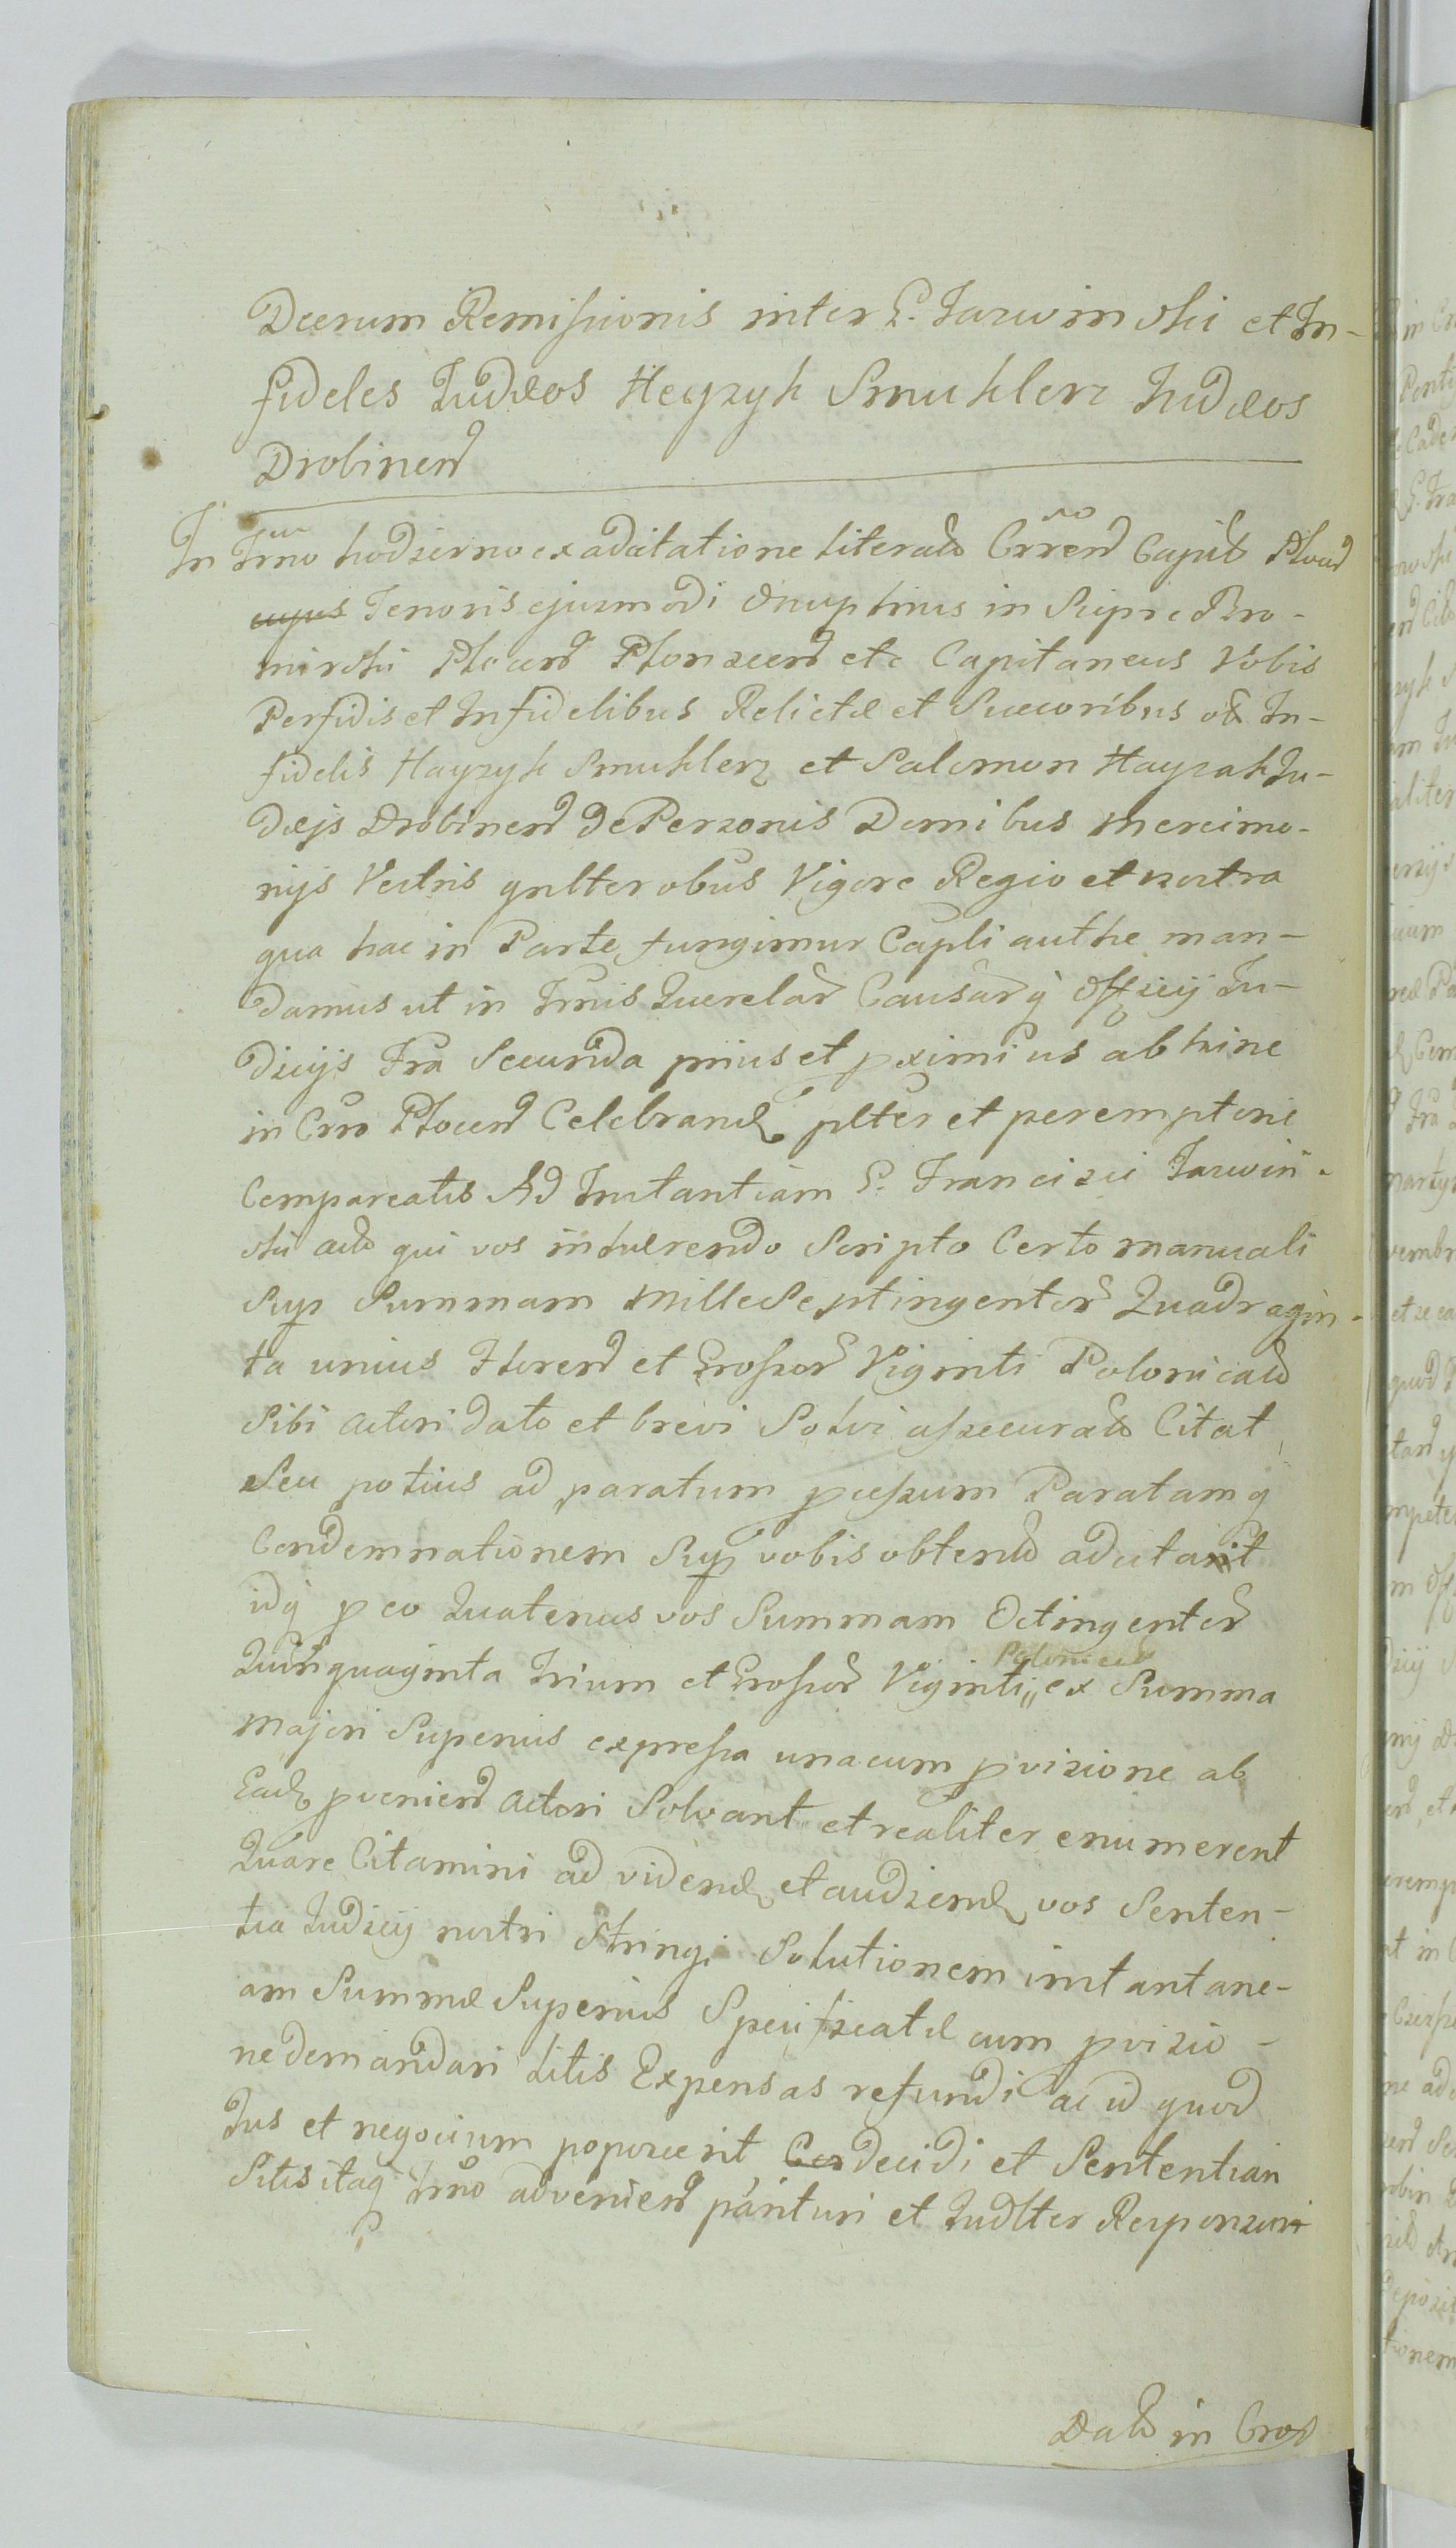 Decrum Remissionis inter G. Jarwinski et In-
fideles Judæos Heyzyk Smuklerz Judæos
Drobinen
In Trno hodierno ex adcitatione literali Crren Capit Plocen
cujus Tenoris ejusmodi Onuphrius in Siepre Bro-
mirski Plocen Plonscen etc Capitaneus Vobis
Perfidis et Infidelibus Relictæ et Succoribus olt In-
fidelis Hayzyk Smuklerz et Salomon Hayzak Ju-
dæjs Drobinen de Personis Domibus mercimo-
nijs Vestris gnlter obus Vigore Regio et nostra
qua hac in Parte fungimur Capli authe man-
damus ut in Trnis Querelar Causarq Officij Ju-
dicijs Fra Secunda prius et pximius abhinc
in Crro Plocen Celebrand plter et peremptorie
Compareatis Ad Instantiam G. Francisci Jarwin-
ski actis qui vos inhærendo Scripto Certo manuali
Sup Summam Mille Septingentor Quadragin-
ta unius Floren et Grossor Viginti Polonicalium
Sibi actori dato et brevi Solvi assecurato Citat
Seu potius ad paratum pcessum Paratamq
Condemnationem Sup vobis obtentam adcitavit
idq p eo Quatenus vos Summam Octingentor
Quinquaginta Trium et Grossor Viginti Polonical ex Summa
majori Superius expressa unacum pvisione ab
Ead pvenien actori Solvant et realiter enumerent
Quare Citamini ad vidend et audiend vos Senten-
tia Judicij nostri Stringi Solutionem instantane-
am Summæ Superius Specificatæ cum pvisio-
ne demandari Litis Expensas refundi ac id quod
Jus et negocium poposcerit Con decidi et Sententian
Sitis itaq Trno advenien parituri et Judlter Responsuri
Dat in Crod